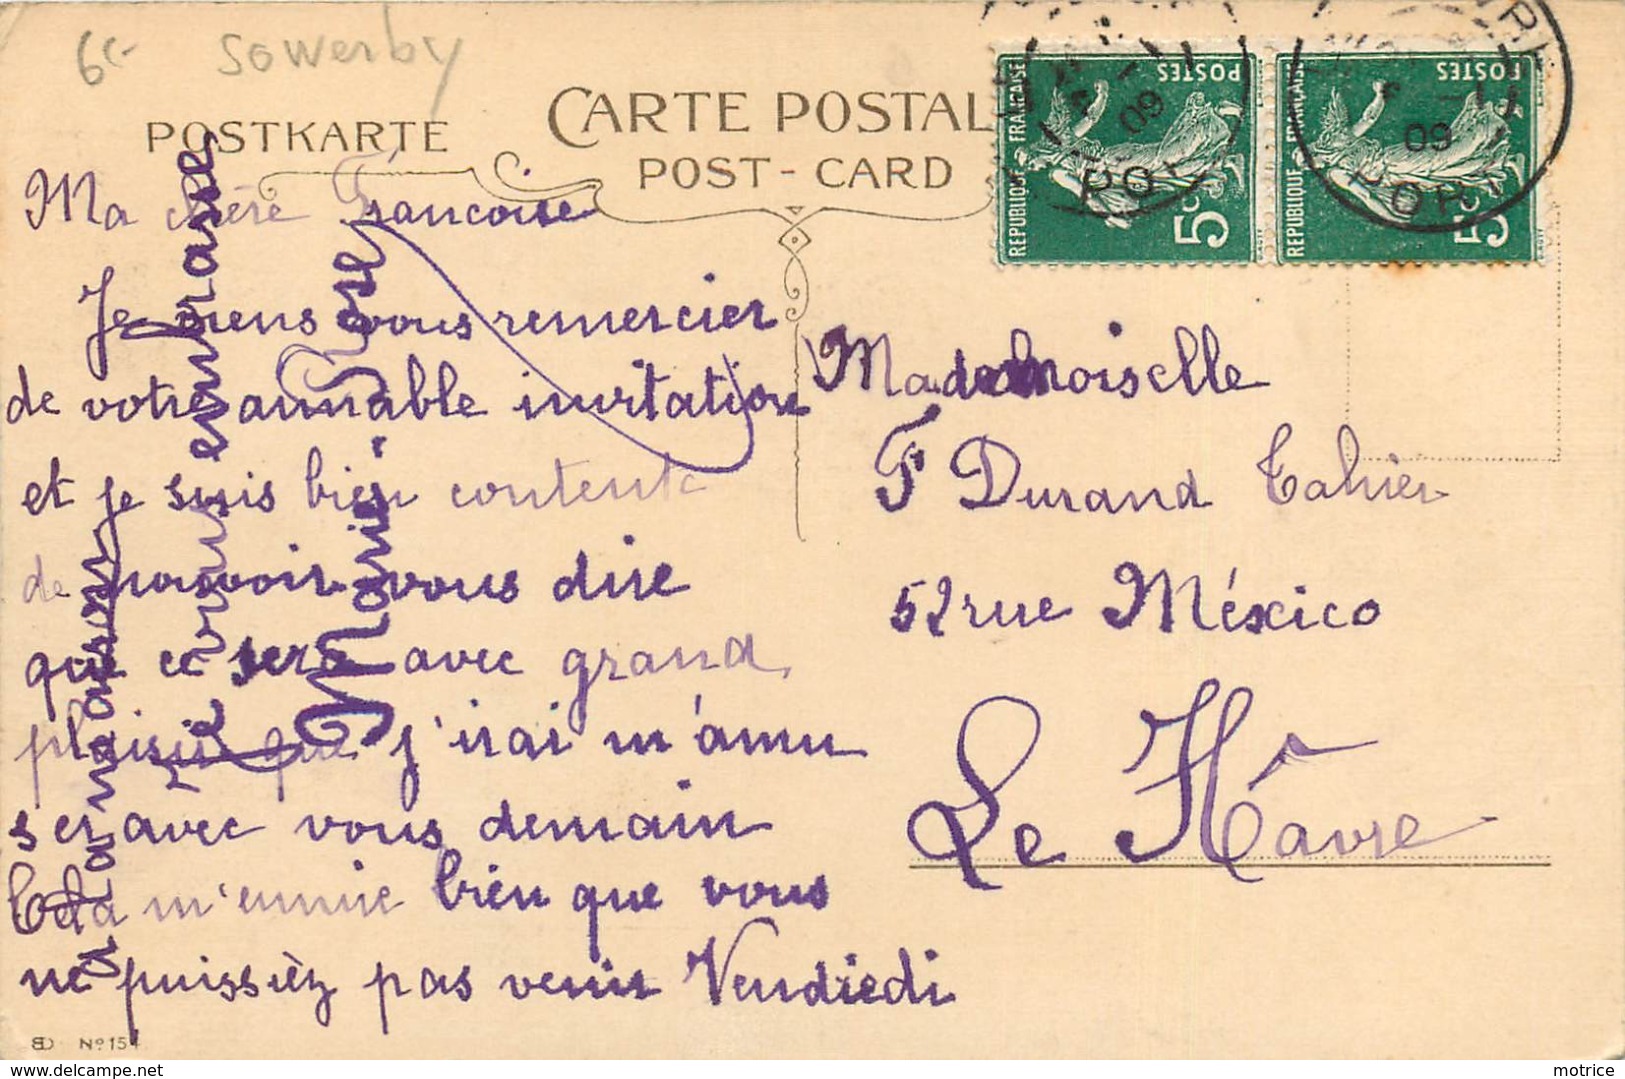 6c- Sowerby
POSTKARTE
CARTE POSTALE
POST-CARD
REPUBLIQUE FRANÇAISE
POSTES
5c
REPUBLIQUE FRANÇAISE
POSTES
5c
09
09
Ma chère Françoise
Je viens vous remercier
de votre aimable invitation
et je suis bien contente
de pouvoir vous dire
que ce sera avec grand
plaisir que j'irai m'amu
ser avec vous demain
Cela m'ennuie bien que vous
ne puissiez pas venir Vendredi
vous embrasse
Marie-Rose
Mademoiselle
F Durand
52 rue México
Le Hâvre
BD No 154
https://www.delcampe.net
motrice